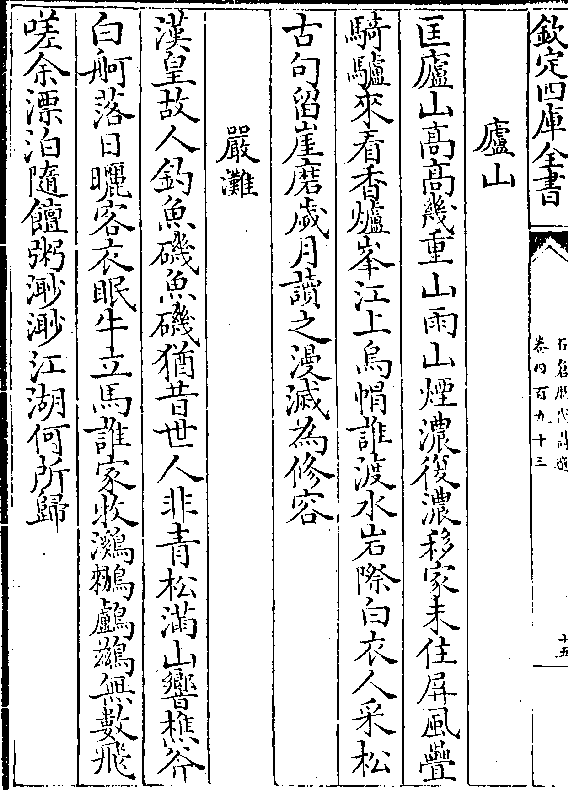 欽定四庫全書
卷四百九十三
十五
廬山
匡廬山高高幾重山雨山煙濃復濃移家未住屏風疊
騎驢來看香爐峯江上烏帽誰渡水岩際白衣人采松
古句留崖磨歲月讀之漫滅為修容
嚴灘
漢皇故人釣魚磯魚磯猶昔世人非青松滿山響樵斧
白舸落日曬客衣眠牛立馬誰家牧鸂鶒鸕鷀無數飛
嗟余漂泊隨饘粥渺渺江湖何所歸